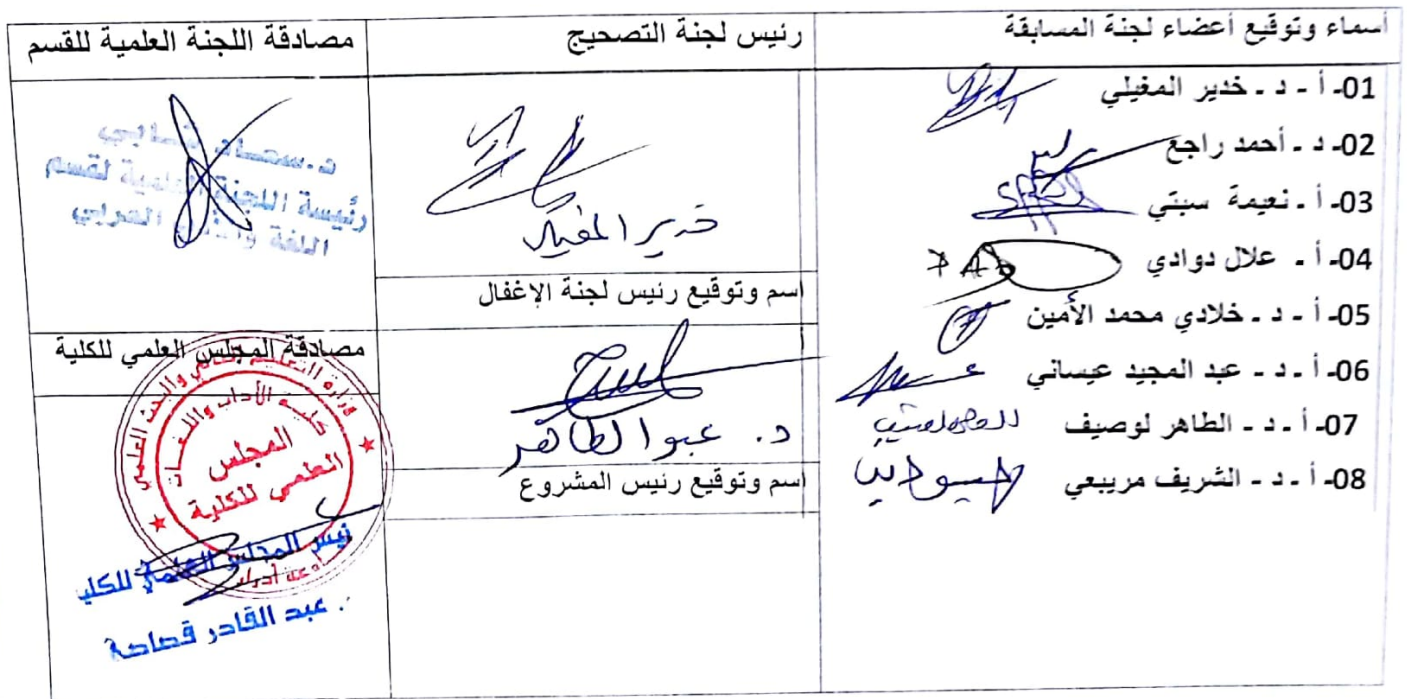 أسماء وتوقيع أعضاء لجنة المسابقة
01- أ - د - خدير المغيلي
02- د - أحمد راجع
03- أ - نعيمة سبتي
04- أ - علال دوادي
05- أ - د - خلادي محمد الأمين
06- أ - د - عبد المجيد عيساني
07- أ - د - الطاهر لوصيف
08- أ - د - الشريف مريبعي
رئيس لجنة التصحيح
خدير المغيلي
اسم وتوقيع رئيس لجنة الإغفال
د. عبو الطاهر
اسم وتوقيع رئيس المشروع
مصادقة اللجنة العلمية للقسم
رئيسة اللجنة العلمية لقسم
اللغة والأدب العربي
مصادقة المجلس العلمي للكلية
وزارة التعليم العالي والبحث العلمي
كلية الأداب واللغات
المجلس
العلمي للكلية
المجلس العلمي للكلي
عبد القادر قصاصة